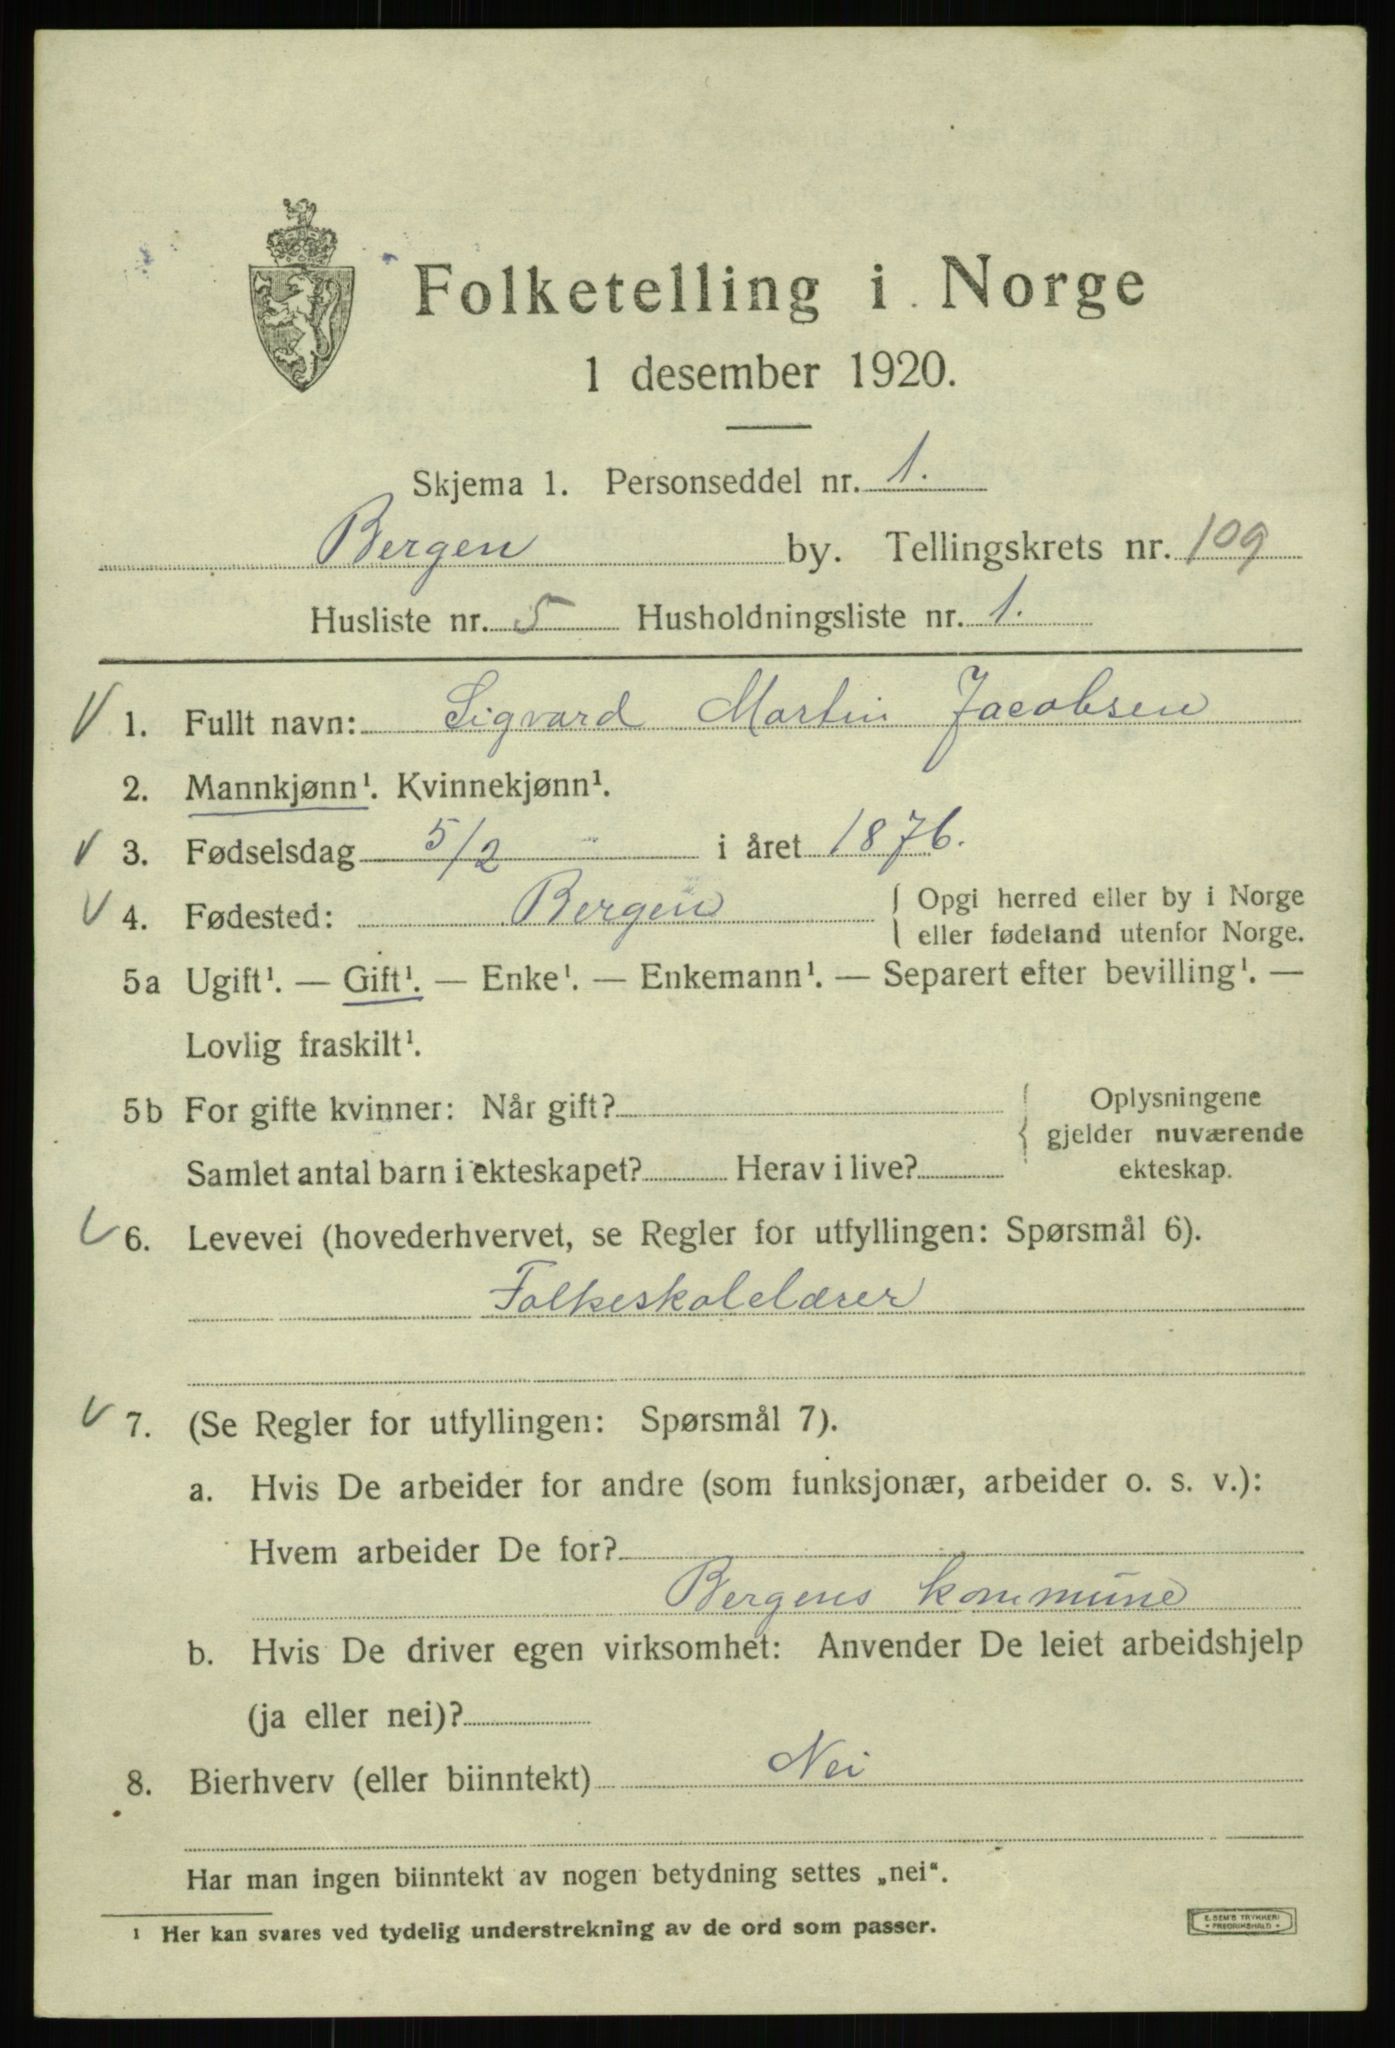 Folketelling i Norge
1 desember 1920.
Skjema 1. Personseddel nr. 1.
Bergen by. Tellingskrets nr. 109
Husliste nr. 5 Husholdningsliste nr. 1.
1. Fullt navn: Sigvard Martin Jacobsen
2. Mannkjønn¹. Kvinnekjønn¹.
3. Fødselsdag 5/2 i året 1876.
4. Fødested: Bergen { Opgi herred eller by i Norge
eller fødeland utenfor Norge.
5a Ugift¹. — Gift¹. — Enke¹. — Enkemann¹. — Separert efter bevilling¹. —
Lovlig fraskilt¹.
5b For gifte kvinner: Når gift? { Oplysningene
gjelder nuværende
Samlet antal barn i ekteskapet? Herav i live? ekteskap.
6. Levevei (hovederhvervet, se Regler for utfyllingen: Spørsmål 6).
Folkeskolelærer
7. (Se Regler for utfyllingen: Spørsmål 7).
a. Hvis De arbeider for andre (som funksjonær, arbeider o. s. v.):
Hvem arbeider De for?
Bergens kommune
b. Hvis De driver egen virksomhet: Anvender De leiet arbeidshjelp
(ja eller nei)?
8. Bierhverv (eller biinntekt) Nei
Har man ingen biinntekt av nogen betydning settes „nei“.
¹ Her kan svares ved tydelig understrekning av de ord som passer.
E. SEM'S TRYKKERI
• FREDRIKSHALD •